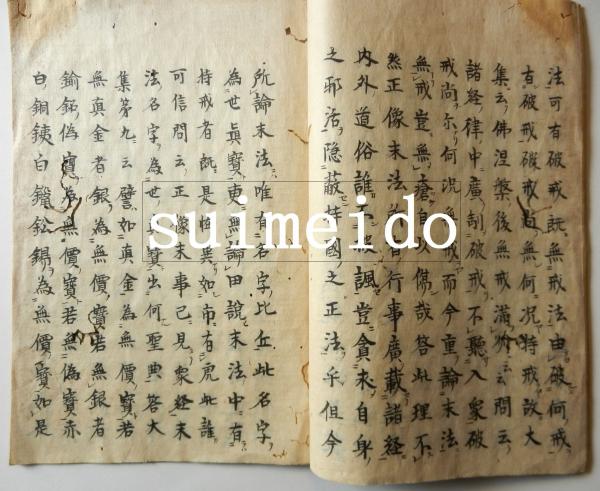 法可有破戒既無戒法由破何戒
有破戒破戒尚無何況持戒故大
集云佛涅槃後無戒滿州云云問云
諸経律中廣制破戒不聽入衆破
戒尚尓何況無戒而今重論末法
無戒豈無瘡自以傷哉答此理不
然正像末法所有行事廣載諸経
内外道俗誰不披諷豈貪求自身
之邪活隠蔽持國之正法乎但今
所論末法唯有名字比丘此名字
為世眞寳更無論田設末法中有
持戒者既是恠異如市有虎此誰
可信問云正像末事已見衆経末
法名字為世真寳出何聖典答大
集苐九云譬如真金為無價寳若
無真金者銀為無價寳若無銀者
鍮鉐偽寳為無價寳若無偽寳赤
白銅鐵白鑞鉛錫為無價寳如是
suimeido